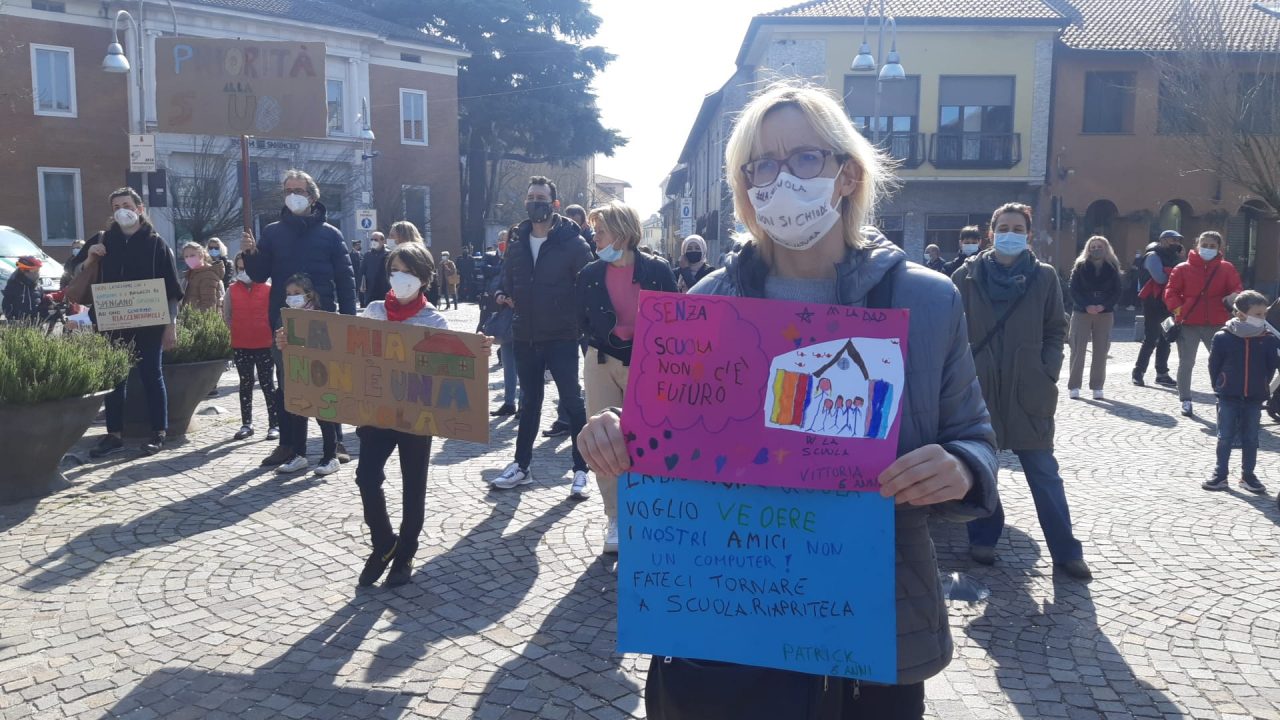 PRIORITÀ
ALLA
NON LASCIAMO CHE I
SPENGANO
RIACCENDIAMOLI!
LA MIA
NON È UNA
SCUOLA
LA SCUOLA
NON SI CHIUDE
SENZA
SCUOLA
NON C'È
FUTURO
W LA DAD
W LA
SCUOLA
VITTORIA
6 ANNI
VOGLIO VEDERE
I NOSTRI AMICI NON
UN COMPUTER!
FATECI TORNARE
A SCUOLA. RIAPRITELA
PATRICK
8 ANNI